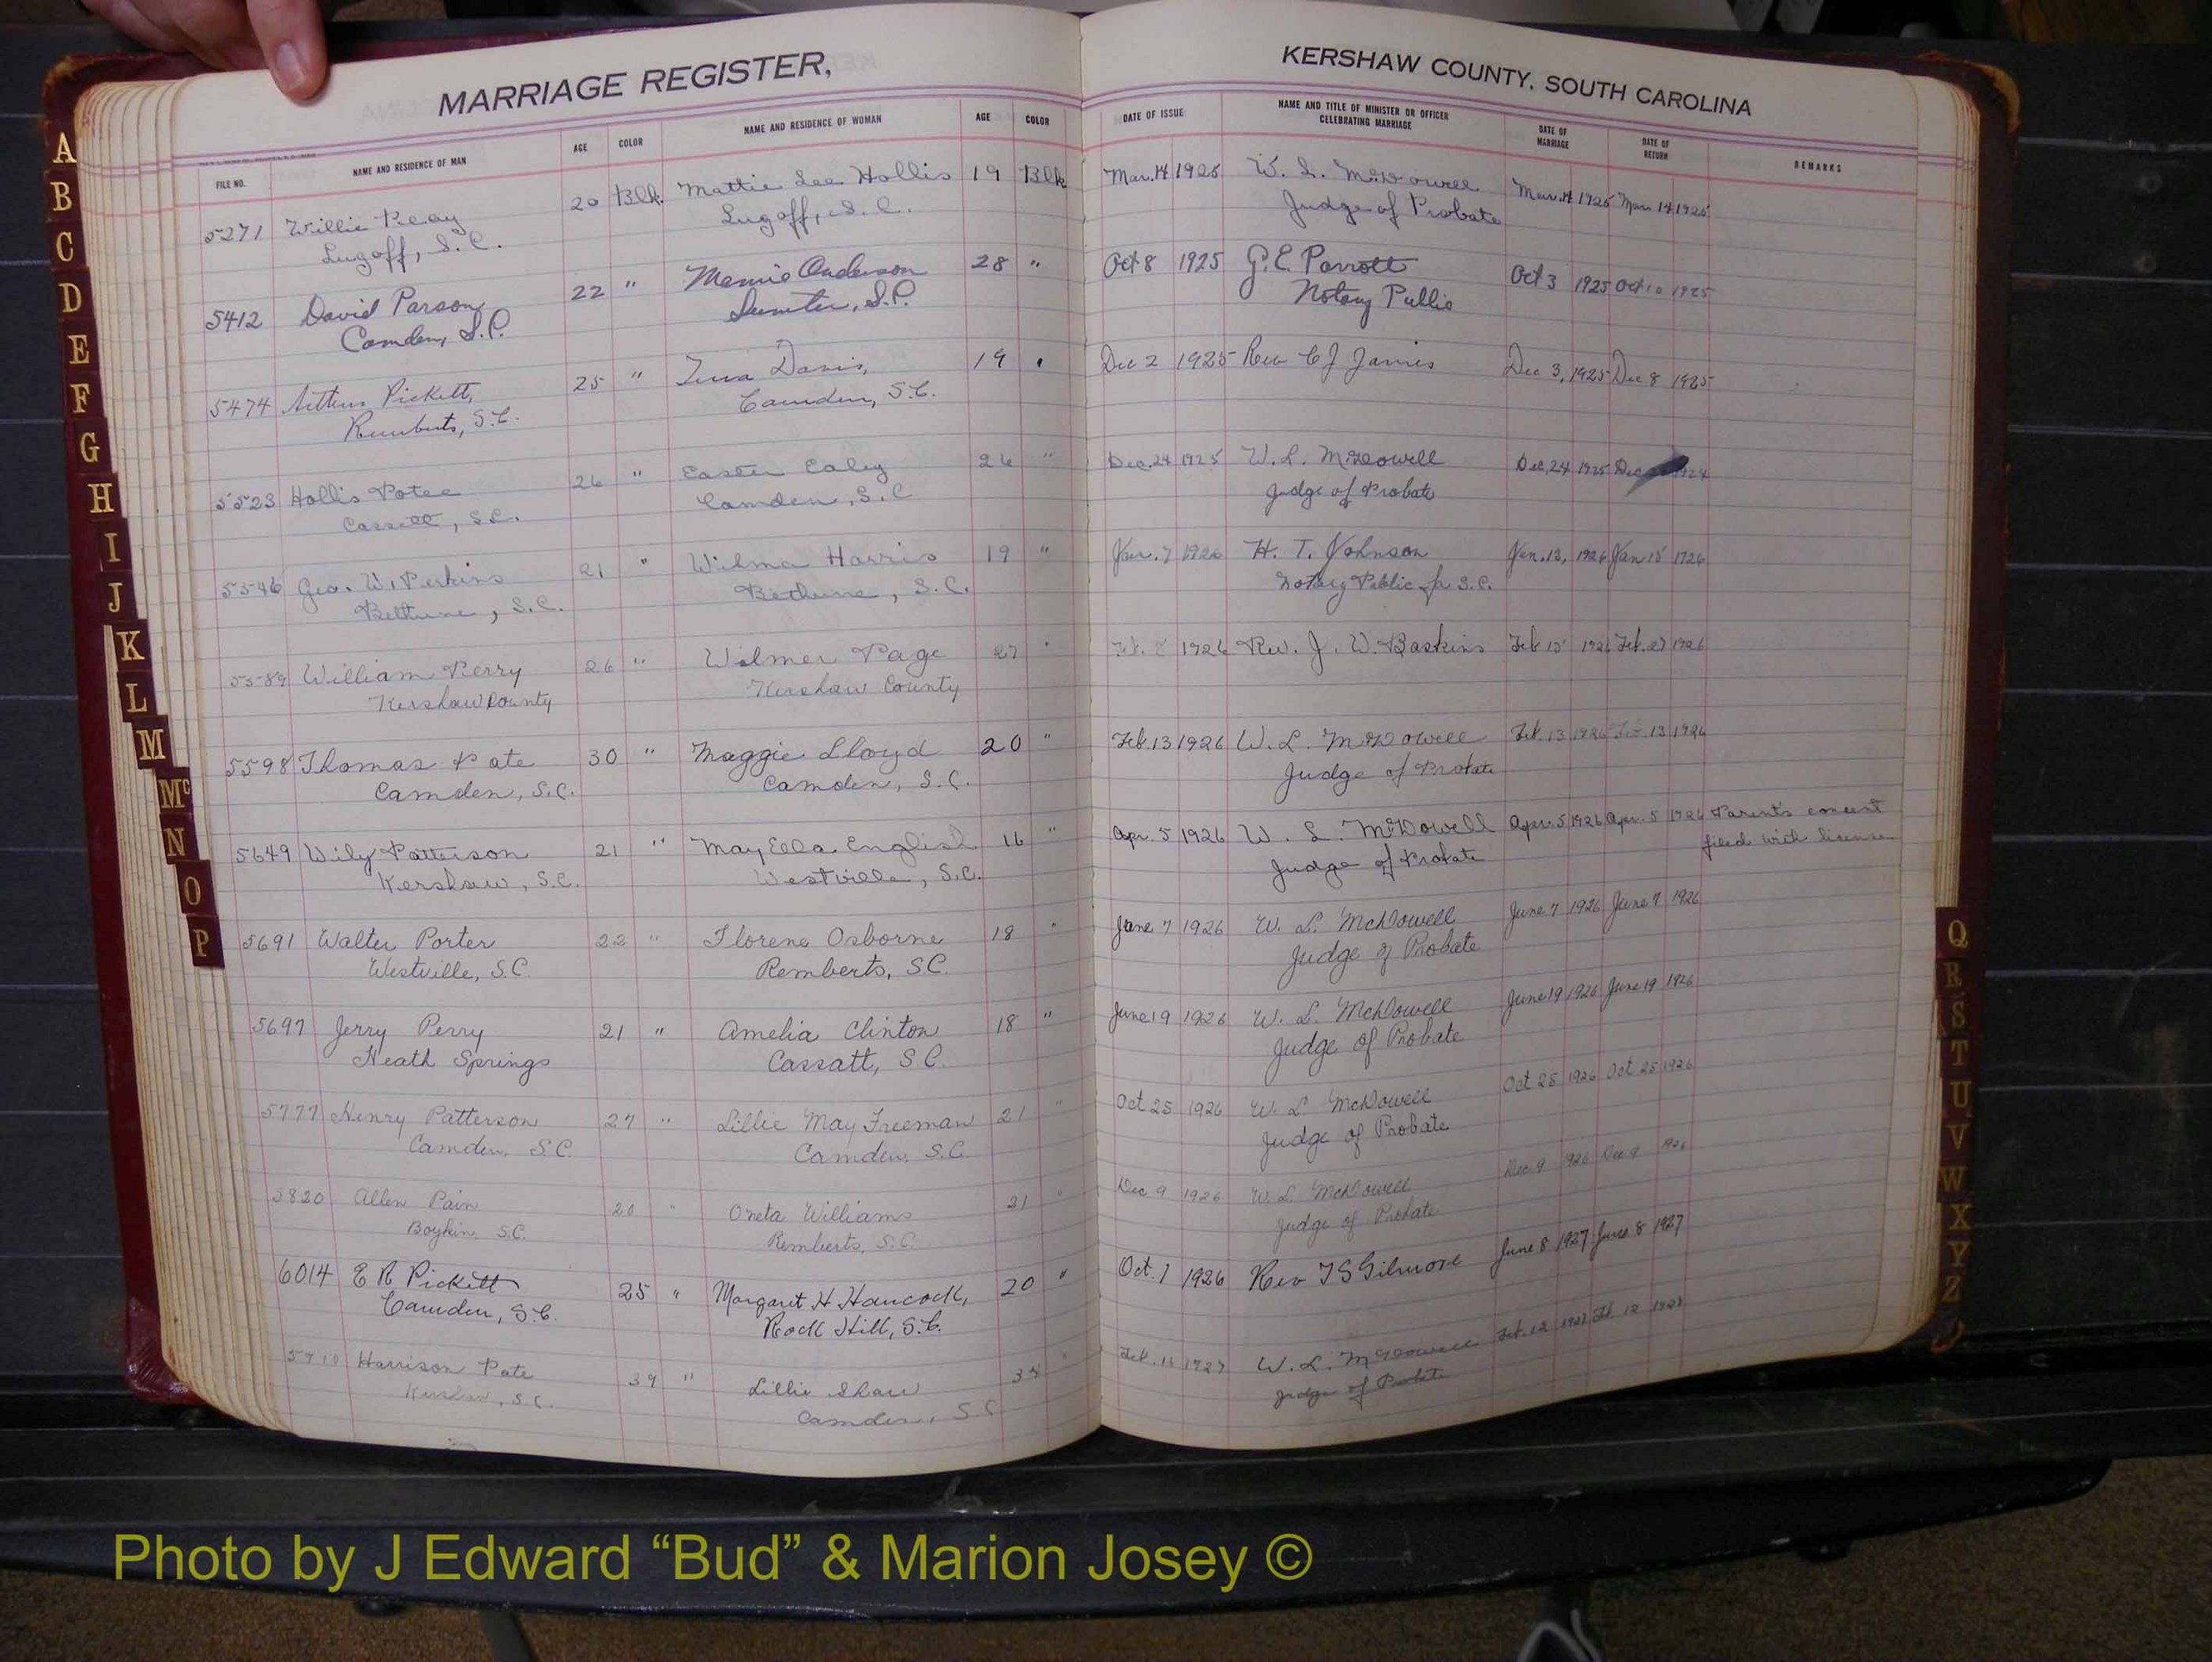 MARRIAGE REGISTER,
KERSHAW COUNTY, SOUTH CAROLINA
FILE NO. NAME AND RESIDENCE OF MAN AGE COLOR NAME AND RESIDENCE OF WOMAN AGE COLOR DATE OF ISSUE NAME AND TITLE OF MINISTER OR OFFICER CELEBRATING MARRIAGE DATE OF MARRIAGE DATE OF RETURN REMARKS
5271 Willie Reay 20 Blk. Mattie Lee Hollis 19 Blk Mar. 14 1925 W. L. McDowell Mar. 14 1925 Mar. 14 1925
Lugoff, S. C. Lugoff, S. C. Judge of Probate
5412 David Parson 22 " Mamie Anderson 28 " Oct 8 1925 G. E. Parrott Oct 3 1925 Oct 10 1925
Camden, S.C. Sumter, S.C. Notary Public
5474 Pickett, 25 " Davis, 19 " Dec 2 1925 Rev C J James Dec 3, 1925 Dec 8 1925
Remberts, S.C. Camden, S.C.
5523 Hollis Potee 26 " Easter Ealey 26 " Dec. 24 1925 W. L. McDowell Dec. 24 1925 Dec 1924
Cassatt, S.C. Camden, S.C Judge of Probate
5546 Geo. W. Perkins 21 " Wilma Harris 19 " Jan. 7 1926 H. T. Johnson Jan. 13, 1926 Jan 15 1926
Bethune, S.C. Bethune, S.C. Notary Public for S.C.
5589 William Perry 26 " Wilmer Page 27 " Feb. 8 1926 Rev. J. W. Baskins Feb 15 1926 Feb. 27 1926
Kershaw County Kershaw County
5598 Thomas Pate 30 " Maggie Lloyd 20 " Feb. 13 1926 W. L. McDowell Feb. 13 1926 Feb. 13 1926
Camden, S.C. Camden, S.C. Judge of Probate
5649 Wily Patterson 21 " May Ella English 16 " Apr. 5 1926 W. L. McDowell Apr. 5 1926 Apr. 5 1926 Parents consent
Kershaw, S.C. Westville, S.C. Judge of Probate filed with license
5691 Walter Porter 22 " Florene Osborne 18 " June 7 1926 W. L. McDowell June 7 1926 June 7 1926
Westville, S.C. Remberts, S.C. Judge of Probate
5697 Jerry Perry 21 " Amelia Clinton 18 " June 19 1926 W. L. McDowell June 19 1926 June 19 1926
Heath Springs Cassatt, S.C. Judge of Probate
5777 Henry Patterson 27 " Lillie May Freeman 21 " Oct 25 1926 W. L. McDowell Oct 25 1926 Oct 25 1926
Camden, S.C. Camden, S.C. Judge of Probate
5820 Allen Pain 20 " Oneta Williams 21 " Dec 9 1926 W. L. McDowell Dec 9 1926 Dec 9 1926
Boykin, S.C. Remberts, S.C. Judge of Probate
6014 E R Pickett 25 " Margaret H Hancock, 20 " Oct. 1 1926 Rev T S Gilmore June 8 1927 June 8 1927
Camden, S.C. Rock Hill, S.C.
5910 Harrison Pate 39 " Lillie Shaw " Feb. 12 1927 W. L. McDowell Feb. 12 1927 Feb. 12 1927
Kershaw, S.C. Camden, S.C Judge of Probate
A
B
C
D
E
F
G
H
I
J
K
L
M
Mc
N
O
P
Q
R
S
T
U
V
W
X
Y
Z
Photo by J Edward “Bud” & Marion Josey ©